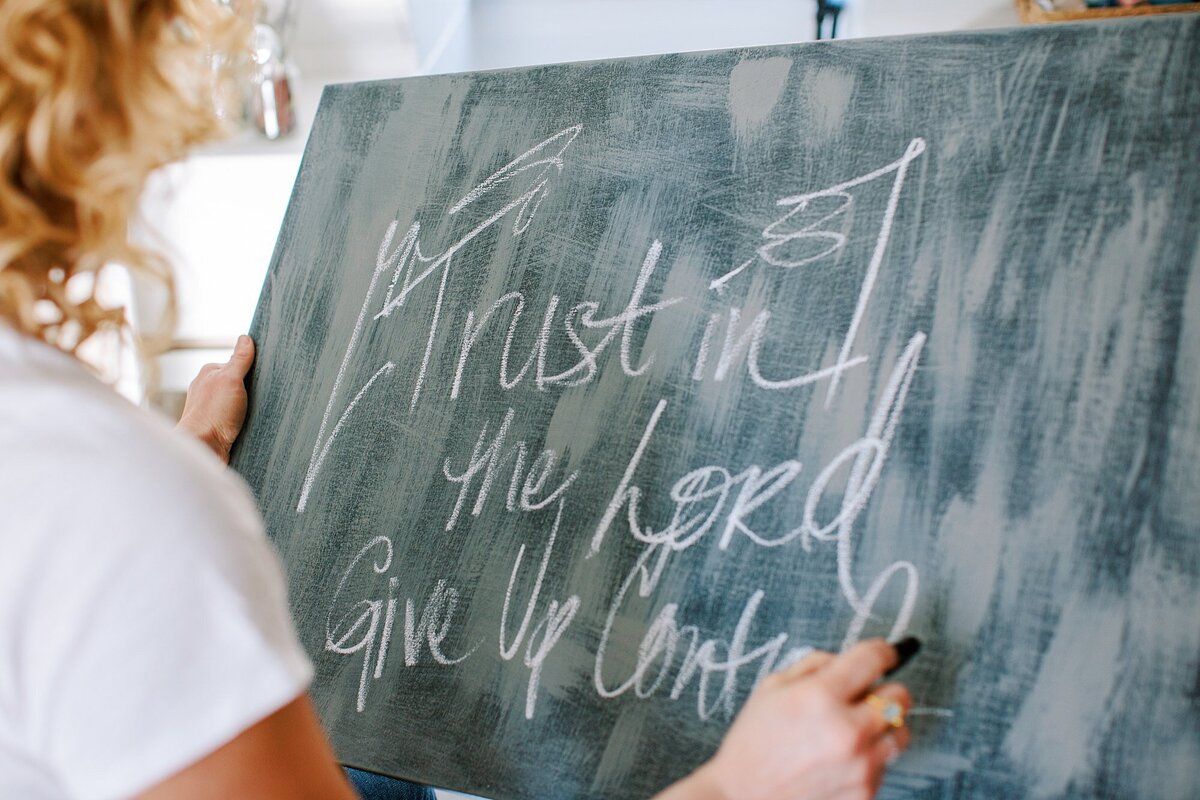 Trust in
the Lord
Give Up Contr